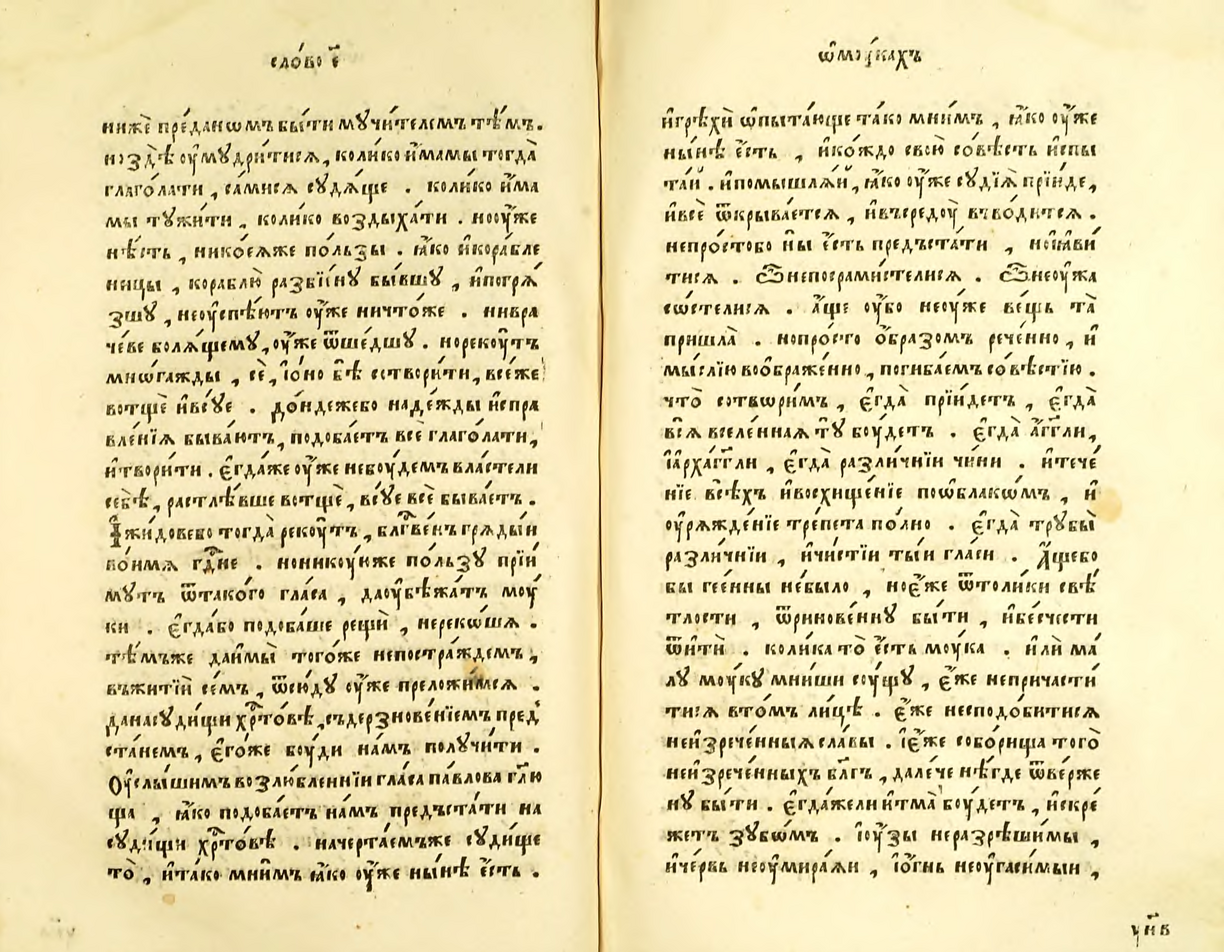 сло́во є҃
нижѐ пре́даномъ бы́ти мꙋчи́телемъ тѣ́мъ.
но здѣ̀ ᲂу҆мꙋдри́тисѧ, коли́ко и҆́мамы тогда̀
глаго́лати, са́мисѧ сꙋдѧ́ще . коли́ко и҆́ма
мы тꙋжи́ти, коли́ко воздыха́ти . ноᲂу҆́же
нѣ́сть, нико́еѧже по́льзы . ꙗ҆́ко и҆корабле
ницы, кораблю̀ разбїи́нꙋ бы́вшꙋ, и҆погрѧ́
зшꙋ, неᲂу҆спѣ́ютъ ᲂу҆́же ничто́же . нивра
че́ве болѧ́щемꙋ, ᲂу҆́же ѿше́дшꙋ . норекꙋ́тъ
мно́гажды, сѐ, і҆о́но бѣ̀ сотвори́ти, все́же
вотщѐ и҆всꙋ́е . до́ндежебо наде́жды и҆спра
вле́нїѧ быва́ютъ, подоба́етъ всѐ глаго́лати,
и҆твори́ти . є҆гда́же ᲂу҆́же небꙋ́демъ власте́ли
себѣ̀, растлѣ́вше вотщѐ, всꙋ́е всѐ быва́етъ .
І҆жи́довебо тогда̀ рекꙋ́тъ, блг҃ве́нъ грѧды́и
во́имѧ гдⷭ҇не . нони́коᲂуже по́льзꙋ прїи́
мꙋтъ ѿтако́го гла́са, даᲂу҆бѣжа́тъ моᲂу́
ки . є҆гда́бо подоба́ше рещѝ, нереко́шѧ .
тѣ́мъже даи҆мы̀ того́же непостра́ждемъ,
въжитїѝ се́мъ, ѿсю́дꙋ ᲂу҆́же преложи́мсѧ .
данасꙋди́щи хрⷭ҇то́вѣ, съдерзнове́нїемъ пред̾
ста́немъ, є҆го́же бꙋ́ди на́мъ полꙋчи́ти .
Оу҆слы́шимъ возлю́бленнїи гла́са па́влова гл҃ю
ща, ꙗ҆́ко подоба́етъ на́мъ предъста́ти на
сꙋди́щи хрⷭ҇то́вѣ . начерта́емъже сꙋди́ще
то̀, и҆та́ко мни́мъ ꙗ҆́ко ᲂу҆́же ны́нѣ є҆́сть .
ѡ҆мꙋ́кахъ
и҆грѣхѝ ѡ҆пыта́юще та́ко мни́мъ, ꙗ҆́ко ᲂу҆́же
ны́нѣ є҆́сть, и҆ко́ждо свою̀ со́вѣсть и҆спы
та́й . и҆помышлѧ́й, ꙗ҆́ко ᲂу҆́же сꙋдїѧ̀ прїи́де,
и҆всѐ ѿкрыва́етсѧ, и҆въсредоᲂу̀ въво́дитсѧ .
непро́стобо ны̀ є҆́сть предъста́ти, ноꙗ҆ви́
тисѧ . Ѿнепосрами́стелисѧ . Ѿнеᲂу҆жа
со́стелисѧ . а҆́ще ᲂу҆́бо неᲂу҆́же ве́щь та̀
пришла̀ . нопро́сто ѻ҆́бразомъ рече́нно, и҆
мы́слїю воѻбраже́нно, погиба́емъ со́вѣстїю .
что̀ сотвори́мъ, є҆гда̀ прїи́детъ, є҆гда̀
всѧ̀ вселе́ннаѧ тꙋ̀ бꙋ́детъ . є҆гда̀ а҆́гг҃ли,
і҆а҆рха́гг҃ли, є҆гда̀ разли́чнїи чи́ни . и҆тече́
нїе всѣ́хъ и҆восхище́нїе поѡ҆́блакомъ, и҆
ᲂу҆рѧжде́нїе тре́пета по́лно . є҆гда̀ трꙋбы̀
разли́чнїи, и҆чи́стїи ты́и гла́си . А҆́щебо
бы гее́нны не́было, ноє҆́же ѿтоли́ки свѣ́
тлости, ѿринове́ннꙋ бы́ти, и҆бесче́сти
ѿитѝ . коли́ка то̀ є҆́сть моᲂу́ка . и҆лѝ ма́
лꙋ моᲂу́кꙋ мни́ши соᲂу́щꙋ, є҆́же непричасти́
тисѧ вто́мъ ли́цѣ . є҆́же несподо́битисѧ
неи҆зрече́нныѧ сла́вы . і҆є҆́же собо́рища того̀
неи҆зрече́нныхъ бл҃гъ, дале́че нѣ́где ѿве́рже
нꙋ бы́ти . є҆гда́жели и҆тма̀ бꙋ́детъ, и҆скре́
жетъ зꙋбо́мъ . і҆ꙋ́зы неразрѣши́мы,
и҆че́рвь неᲂу҆мира́ѧи, і҆ѻ҆́гнь неᲂу҆гаси́мыи,
ун҃в